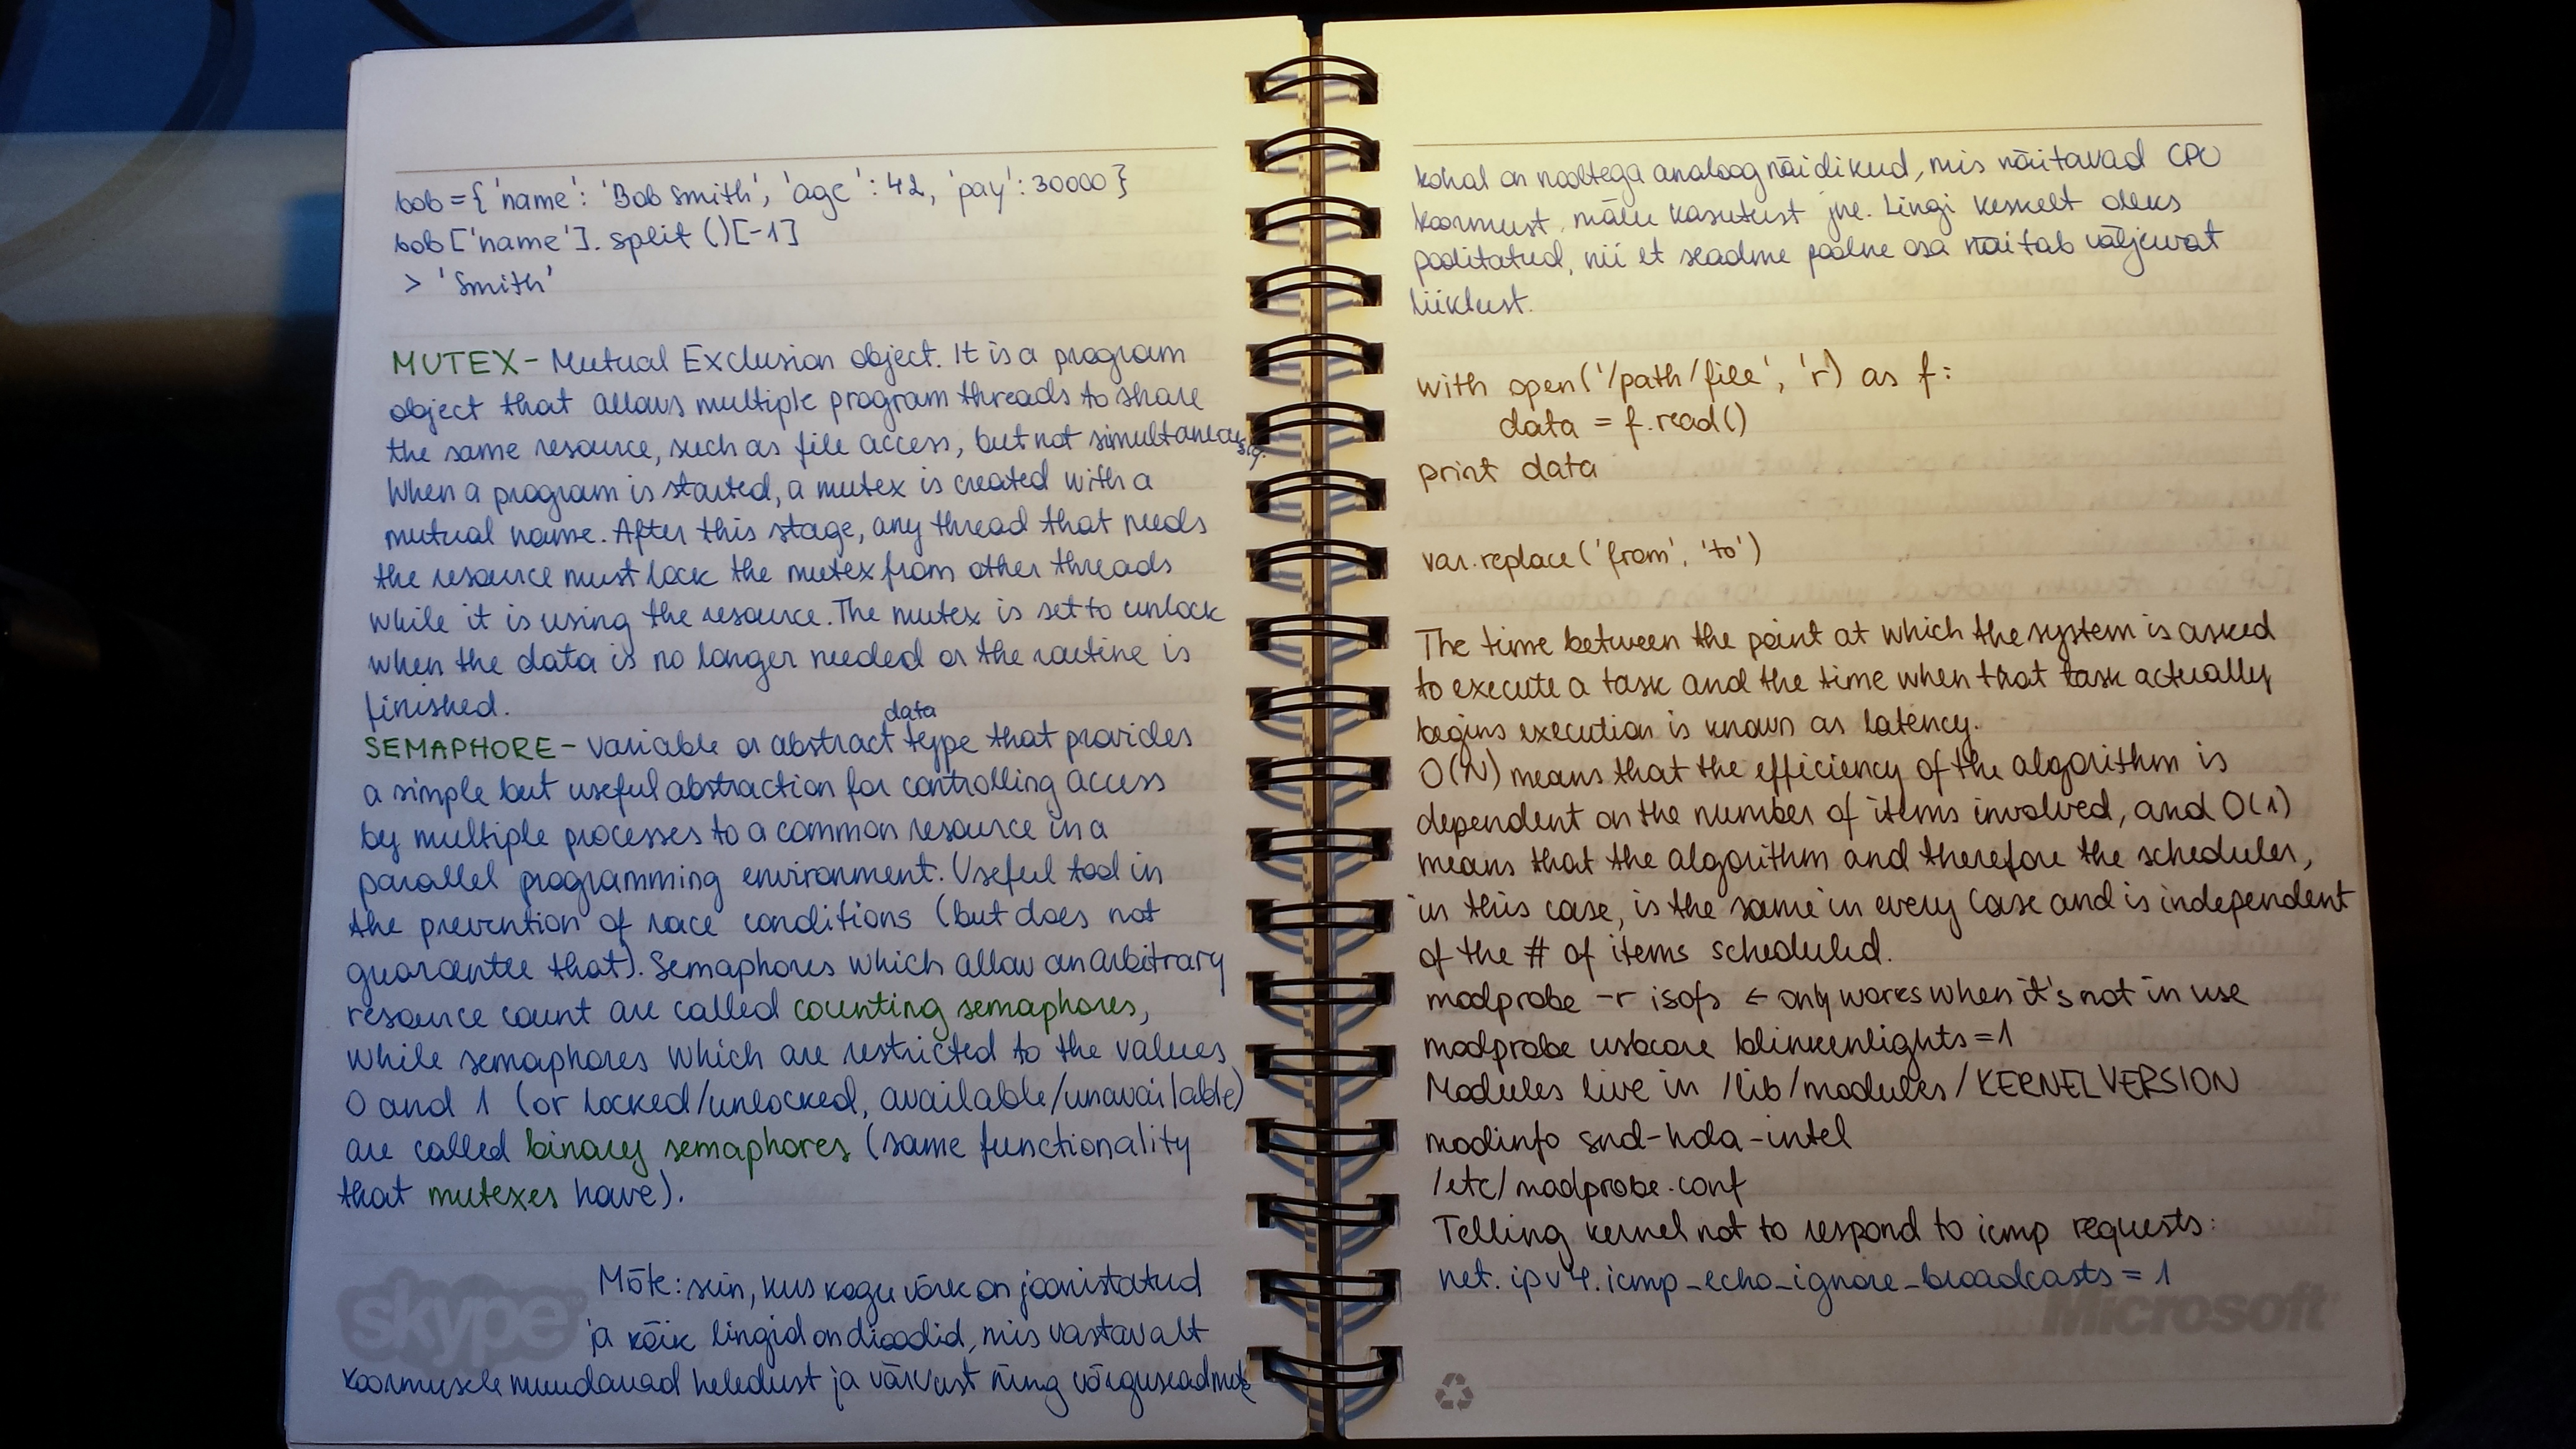 bob = {'name': 'Bob Smith', 'age': 42, 'pay': 30000}
bob['name'].split()[-1]
> 'Smith'
MUTEX - Mutual Exclusion object. It is a program
object that allows multiple program threads to share
the same resource, such as file access, but not simultaneously.
When a program is started, a mutex is created with a
mutual name. After this stage, any thread that needs
the resource must lock the mutex from other threads
while it is using the resource. The mutex is set to unlock
when the data is no longer needed or the routine is
finished.
SEMAPHORE - variable or abstract data type that provides
a simple but useful abstraction for controlling access
by multiple processes to a common resource in a
parallel programming environment. Useful tool in
the prevention of race conditions (but does not
guarantee that). Semaphores which allow an arbitrary
resource count are called counting semaphores,
while semaphores which are restricted to the values
0 and 1 (or locked/unlocked, available/unavailable)
are called binary semaphores (same functionality
that mutexes have).
Mõte: sein, kus kogu võrk on joonistatud
ja kõik lingid on dioodid, mis vastavalt
koormusele muudavad heledust ja värvust ning võrguseadmete
skype
kohal on nooltega analoog näidikud, mis näitavad CPU
koormust, mälu kasutust jne. Lingi keskelt oleks
poolitatud, nii et seadme poolne osa näitab väljuvat
liiklust.
with open('/path/file', 'r') as f:
data = f.read()
print data
var.replace('from', 'to')
The time between the point at which the system is asked
to execute a task and the time when that task actually
begins execution is known as latency.
O(N) means that the efficiency of the algorithm is
dependent on the number of items involved, and O(1)
means that the algorithm and therefore the scheduler,
in this case, is the same in every case and is independent
of the # of items scheduled.
modprobe -r isofs ← only works when it's not in use
modprobe usbcore blinkenlights=1
Modules live in /lib/modules/KERNELVERSION
modinfo snd-hda-intel
/etc/modprobe.conf
Telling kernel not to respond to icmp requests:
net.ipv4.icmp_echo_ignore_broadcasts = 1
Microsoft